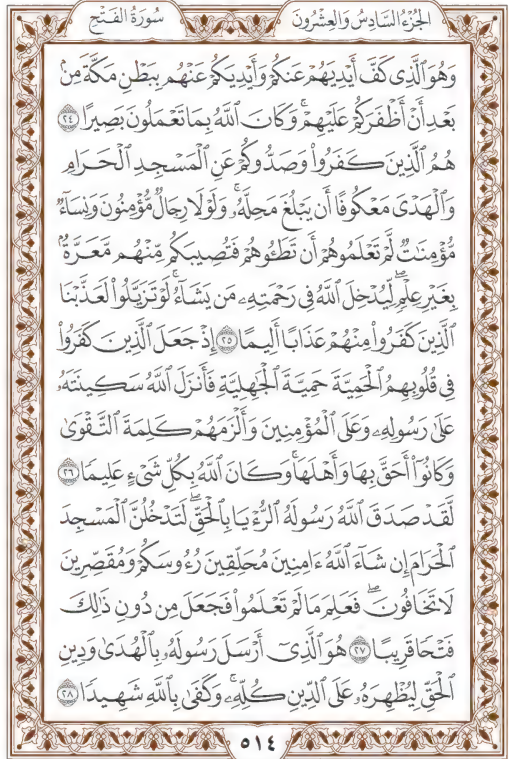 الجزء السادس والعشرون سورة الفتح
وَهُوَ ٱلَّذِى كَفَّ أَيْدِيَهُمْ عَنكُمْ وَأَيْدِيَكُمْ عَنْهُم بِبَطْنِ مَكَّةَ مِنۢ
بَعْدِ أَنْ أَظْفَرَكُمْ عَلَيْهِمْ ۚ وَكَانَ ٱللَّهُ بِمَا تَعْمَلُونَ بَصِيرًا ٢٤
هُمُ ٱلَّذِينَ كَفَرُوا۟ وَصَدُّوكُمْ عَنِ ٱلْمَسْجِدِ ٱلْحَرَامِ
وَٱلْهَدْىَ مَعْكُوفًا أَن يَبْلُغَ مَحِلَّهُۥ ۚ وَلَوْلَا رِجَالٌ مُّؤْمِنُونَ وَنِسَآءٌ
مُّؤْمِنَـٰتٌ لَّمْ تَعْلَمُوهُمْ أَن تَطَـُٔوهُمْ فَتُصِيبَكُم مِّنْهُم مَّعَرَّةٌۢ
بِغَيْرِ عِلْمٍ ۖ لِّيُدْخِلَ ٱللَّهُ فِى رَحْمَتِهِۦ مَن يَشَآءُ ۚ لَوْ تَزَيَّلُوا۟ لَعَذَّبْنَا
ٱلَّذِينَ كَفَرُوا۟ مِنْهُمْ عَذَابًا أَلِيمًا ٢٥ إِذْ جَعَلَ ٱلَّذِينَ كَفَرُوا۟
فِى قُلُوبِهِمُ ٱلْحَمِيَّةَ حَمِيَّةَ ٱلْجَـٰهِلِيَّةِ فَأَنزَلَ ٱللَّهُ سَكِينَتَهُۥ
عَلَىٰ رَسُولِهِۦ وَعَلَى ٱلْمُؤْمِنِينَ وَأَلْزَمَهُمْ كَلِمَةَ ٱلتَّقْوَىٰ
وَكَانُوٓا۟ أَحَقَّ بِهَا وَأَهْلَهَا ۚ وَكَانَ ٱللَّهُ بِكُلِّ شَىْءٍ عَلِيمًا ٢٦
لَّقَدْ صَدَقَ ٱللَّهُ رَسُولَهُ ٱلرُّءْيَا بِٱلْحَقِّ ۖ لَتَدْخُلُنَّ ٱلْمَسْجِدَ
ٱلْحَرَامَ إِن شَآءَ ٱللَّهُ ءَامِنِينَ مُحَلِّقِينَ رُءُوسَكُمْ وَمُقَصِّرِينَ
لَا تَخَافُونَ ۖ فَعَلِمَ مَا لَمْ تَعْلَمُوا۟ فَجَعَلَ مِن دُونِ ذَٰلِكَ
فَتْحًا قَرِيبًا ٢٧ هُوَ ٱلَّذِىٓ أَرْسَلَ رَسُولَهُۥ بِٱلْهُدَىٰ وَدِينِ
ٱلْحَقِّ لِيُظْهِرَهُۥ عَلَى ٱلدِّينِ كُلِّهِۦ ۚ وَكَفَىٰ بِٱللَّهِ شَهِيدًا ٢٨
٥١٤